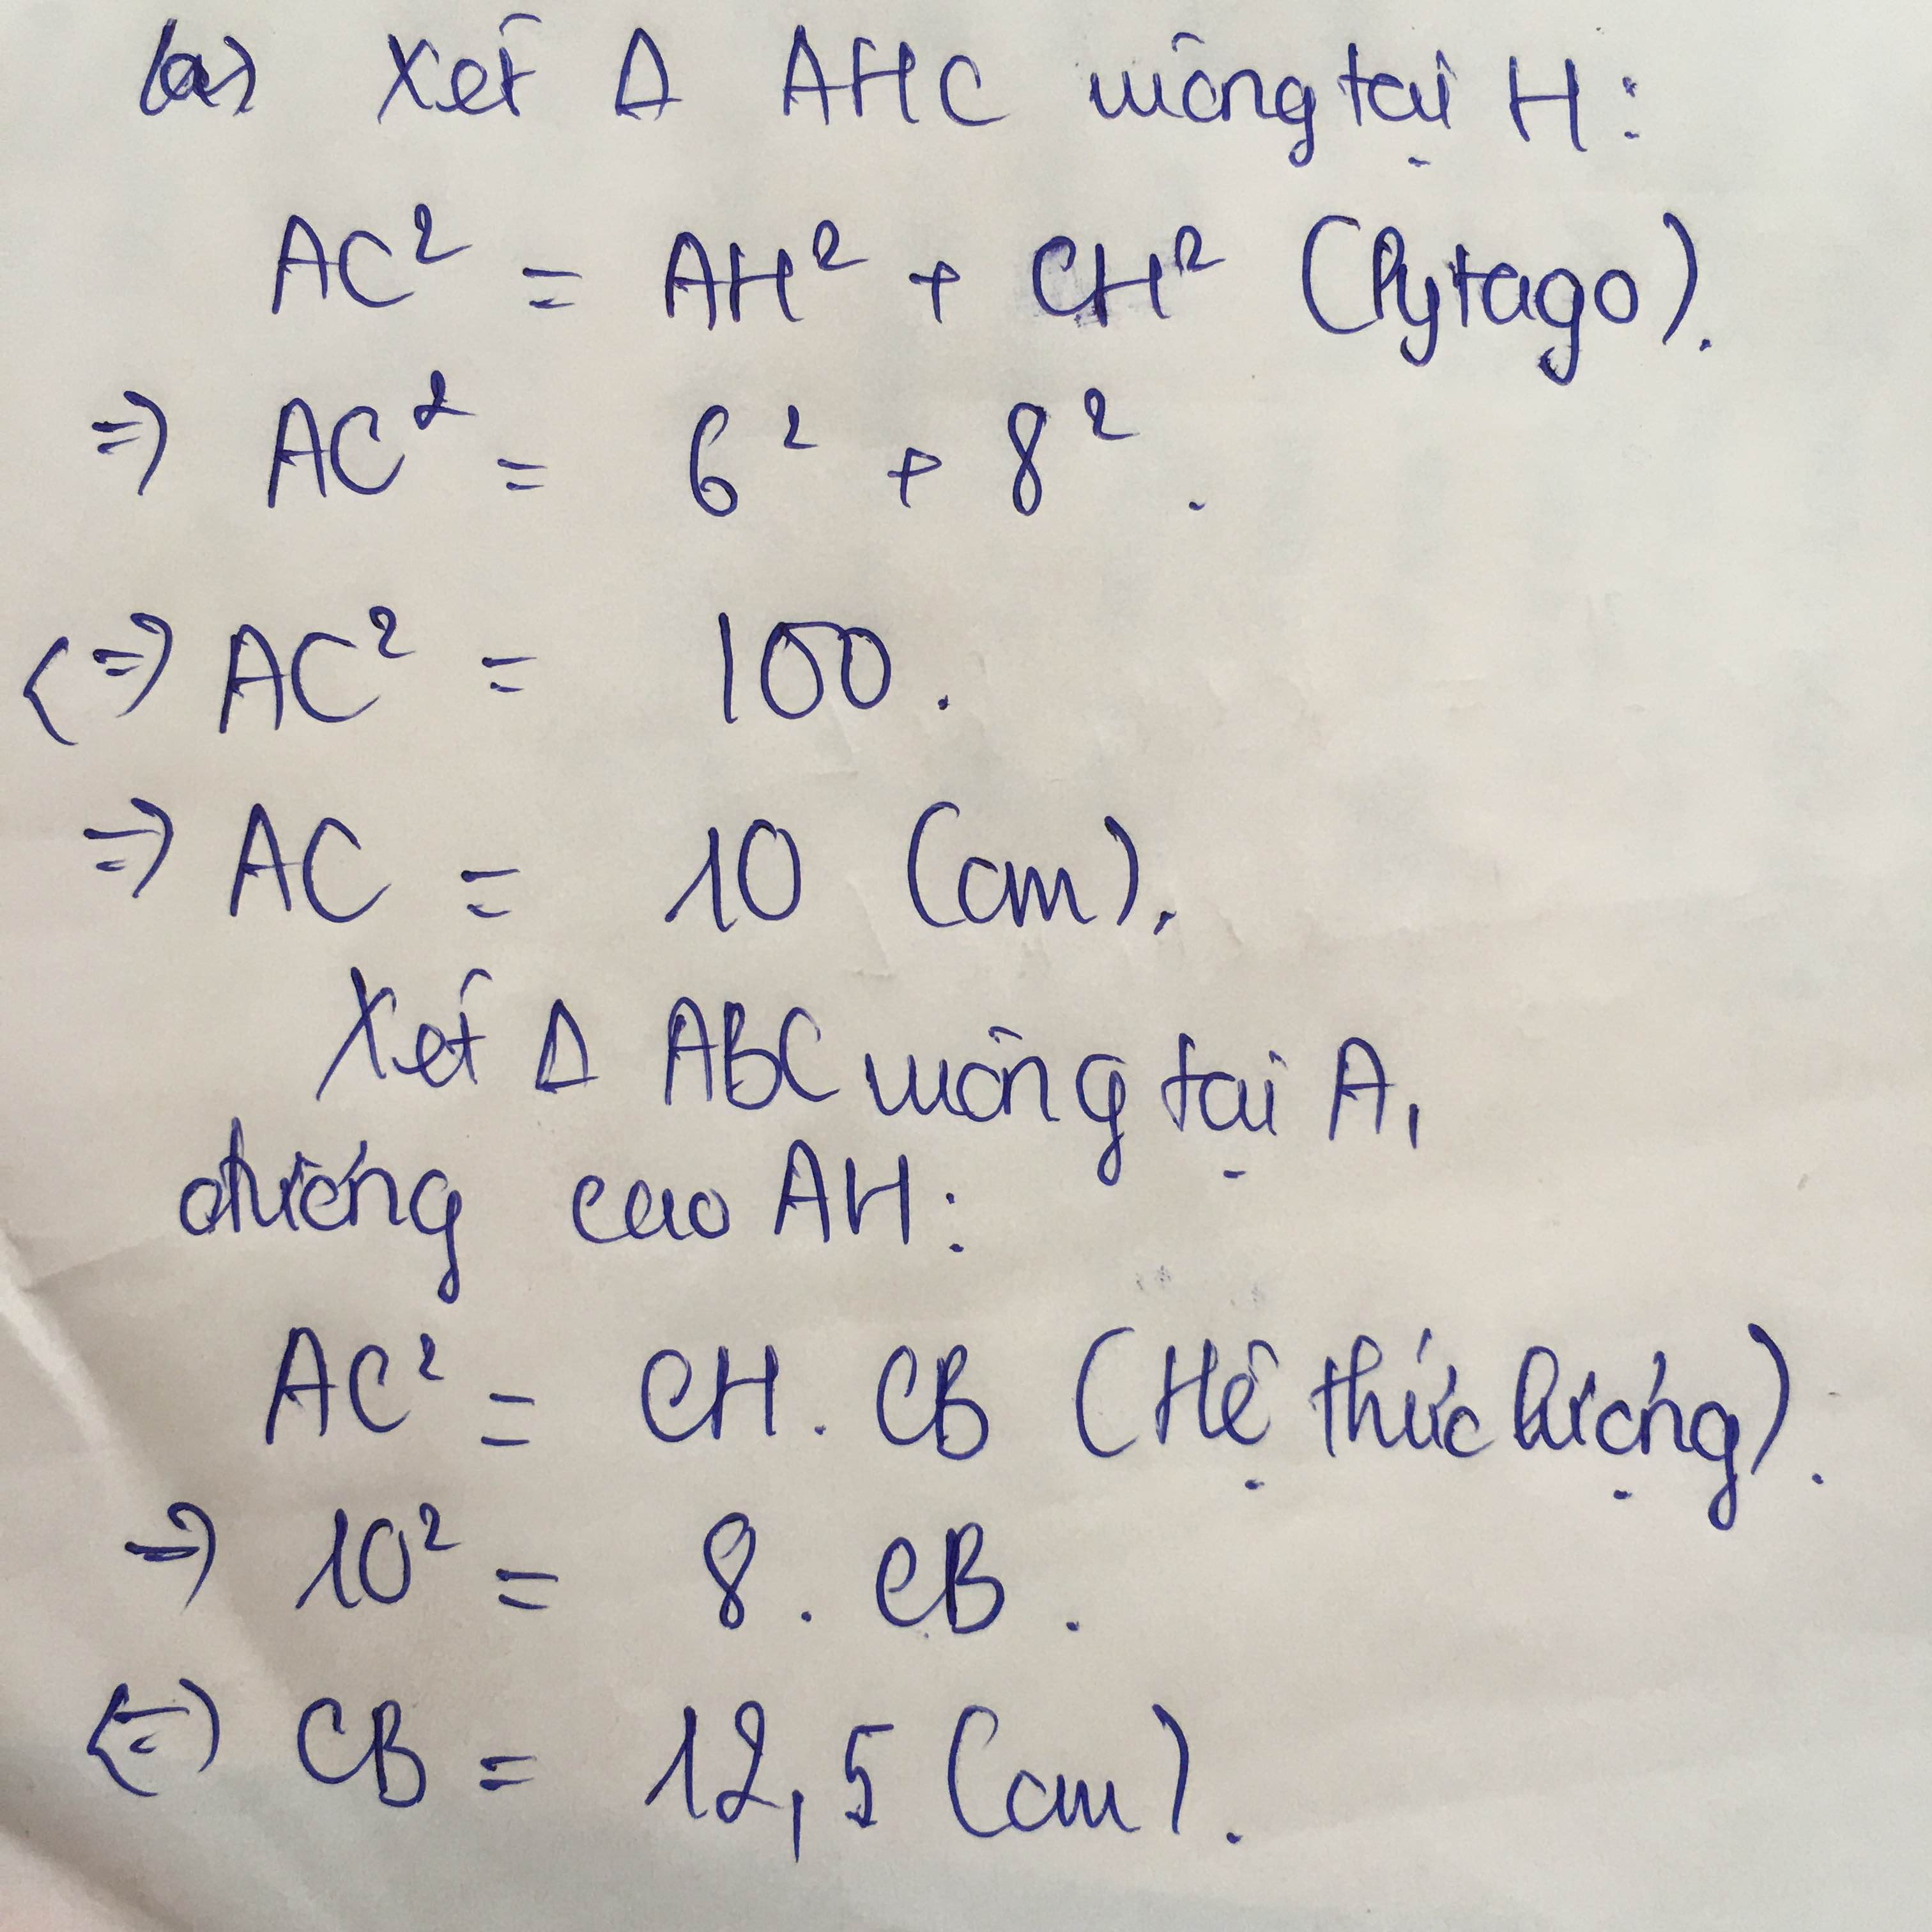 (a) Xét Δ AHC vuông tại H:
AC² = AH² + CH² (Pytago).
=> AC² = 6² + 8².
<=> AC² = 100.
=> AC = 10 (cm).
Xét Δ ABC vuông tại A,
đường cao AH:
AC² = CH . CB (Hệ thức lượng).
=> 10² = 8 . CB.
<=> CB = 12,5 (cm).